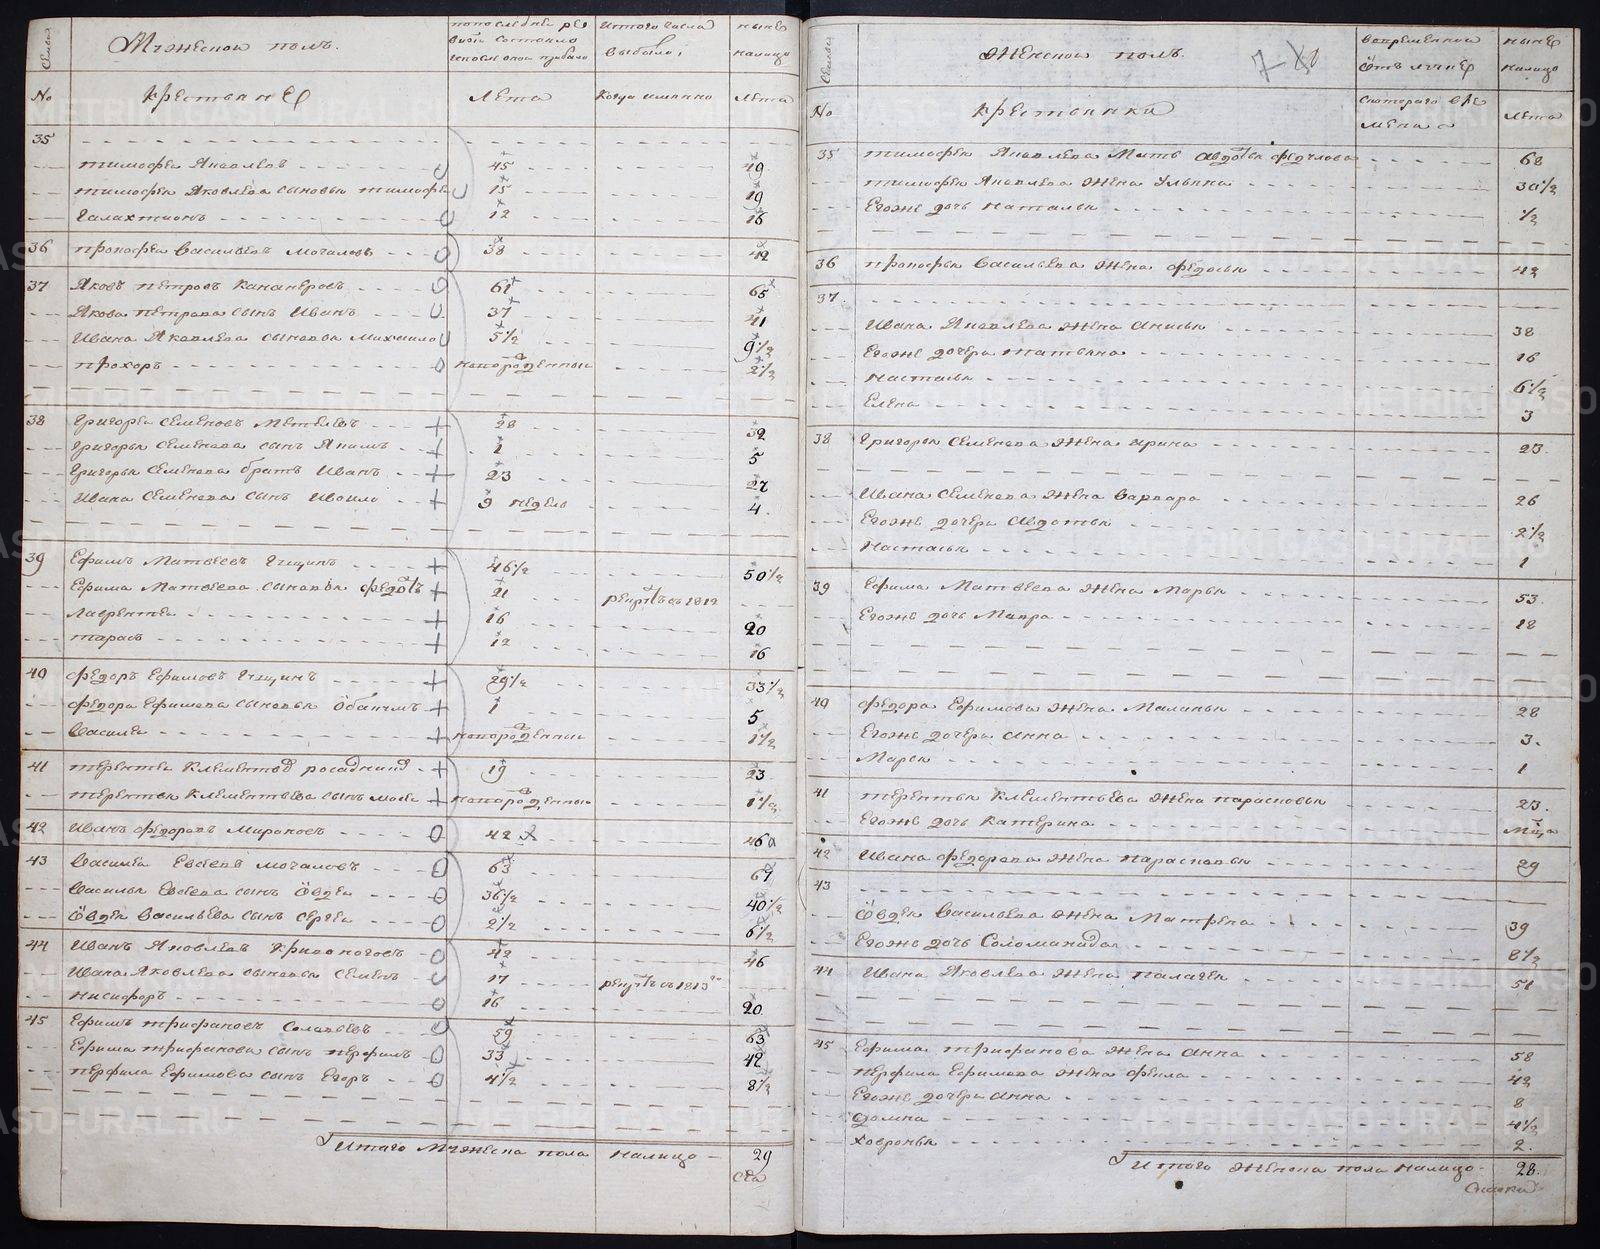 Семьи
Мужеской полъ.
по последней ревизіи состояло и после оной прибыло
Изтого числа выбыло,
ныне налицо
No
Крестьяне
Лета
Когда имянно
Лета
35
Тимофей Яковлевъ 45 49
Тимофея Яковлева сыновья Тимофей 15 19
Галахтионъ 12 16
36 Прокофей Васильевъ Мочаловъ 38 42
37 Яковъ Петровъ 61 65
Якова Петрова сынъ Иванъ 37 41
Ивана Яковлева сыновья Михайло 5 1/2 9 1/2
Прохоръ новорожденный 2 1/2
38 Григорей Семеновъ Метелевъ 28 32
Григорья Семенова сынъ Якимъ 1 5
Григорья Семенова братъ Иванъ 23 27
Ивана Семенова сынъ 9 недель 4
39 Ефимъ Матвеевъ 46 1/2 50 1/2
Ефима Матвеева сыновья Федотъ 21 рекрутъ въ 1812
Лаврентей 16 20
Тарасъ 12 16
40 Федоръ Ефимовъ 29 1/2 33 1/2
Федора Ефимова сыновья 1 5
Василей новорожденные 1 1/2
41 Терентей Клементьевъ 19 23
Терентья Клементьева сынъ новорожденный 1 1/2
42 Иванъ Федоровъ Мироновъ 42 46
43 Василей Евсеевъ Мочаловъ 63 67
Василья Евсеева сынъ Овдей 36 1/2 40 1/2
Овдея Васильева сынъ Сергей 2 1/2 6 1/2
44 Иванъ Яковлевъ Кривоноговъ 42 46
Ивана Яковлева сыновья Семенъ 17 рекрутъ въ 1813
Никифоръ 16 20
45 Ефимъ Трифановъ Соловьевъ 59 63
Ефима Трифанова сынъ Перфилъ 33 42
Перфила Ефимова сынъ Егоръ 4 1/2 8 1/2
Итого Мужеска пола налицо 29
Семьи
Женской полъ.
Вовременной отлучке
ныне налицо
7
No
Крестьянки
Скотораго времена
Лета
35 Тимофея Яковлева Мать Авдотья Федулова 68
Тимофея Яковлева Жена Ульяна 30 1/2
Егоже дочь Наталья 1/2
36 Прокофья Васильева Жена Федосья 42
37.
Ивана Яковлева Жена Анисья 38
Егоже дочери Татьяна 16
Настасья 6 1/2
Елена 3
38 Григорья Семенова Жена Арина 23.
Ивана Семенова Жена Варвара 26
Егоже дочери Авдотья 2 1/2
Настасья 1
39 Ефима Матвеева Жена Марья 53.
Егоже дочь Мавра 18
40 Федора Ефимова Жена Маланья 28
Егоже дочери Анна 3.
Марья 1
41 Терентья Клементьева Жена Парасковья 23.
Егоже дочь Катерина
42 Ивана Федорова Жена Парасковья 29
43
Овдея Васильева Жена Матрена 39
Егоже дочь Соломанида 8 1/2
44 Ивана Яковлева Жена Палагея 51
45 Ефима Трифанова Жена Анна 58
Перфила Ефимова Жена Фекла 42
Егоже дочери Анна 8
Домна 4 1/2
Ховронья 2.
Итого Женска пола налицо 28.
METRIKI.GASO-URAL.RU